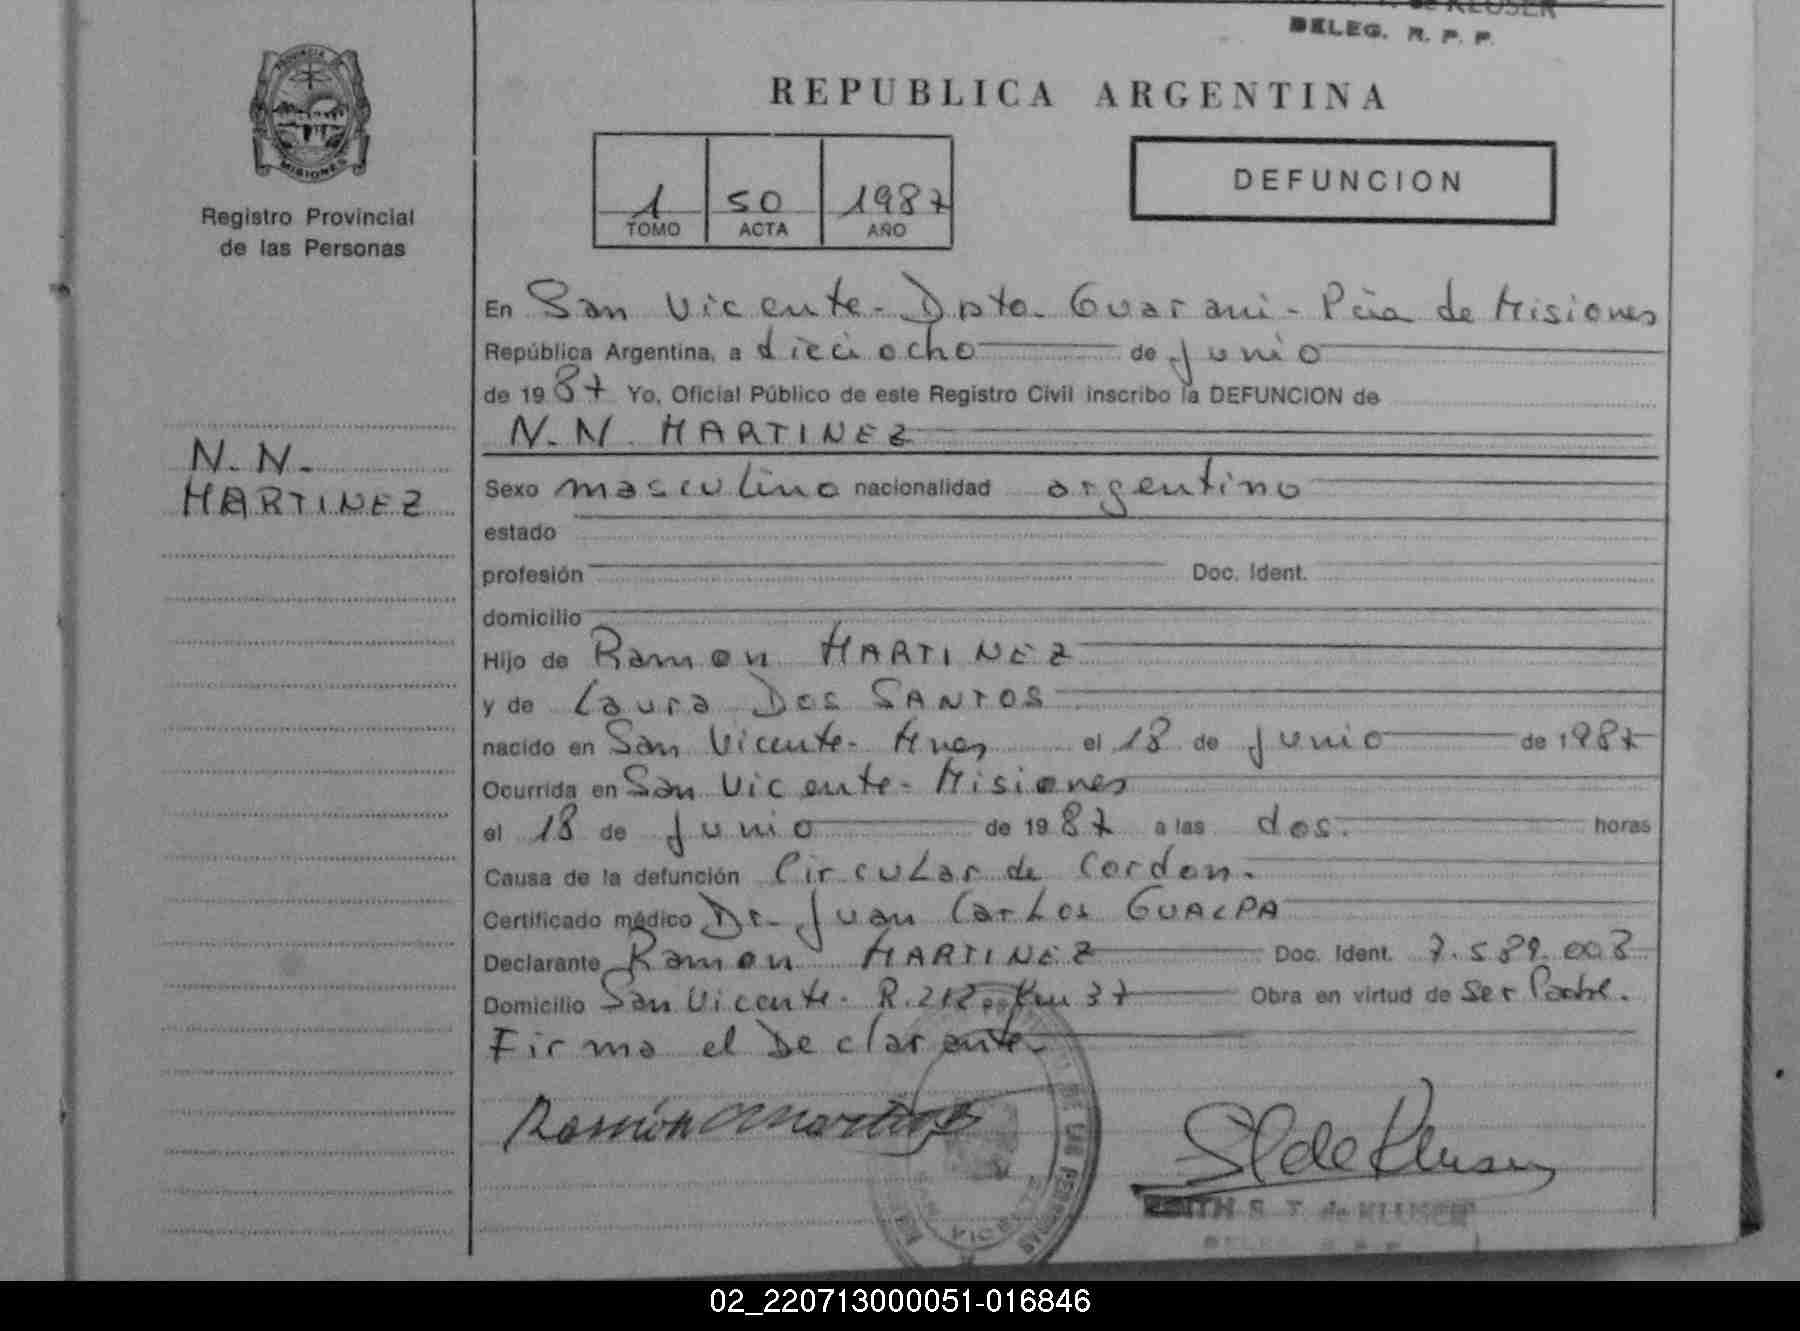 de KLUSER
DELEG. R. P. P.
PROVINCIA
MISIONES
Registro Provincial
de las Personas
REPUBLICA ARGENTINA
1 50 1987
TOMO ACTA AÑO
DEFUNCION
En San Vicente - Dpto. Guarani - Pcia de Misiones
República Argentina, a dieciocho de junio
de 1987 Yo, Oficial Público de este Registro Civil inscribo la DEFUNCION de
N. N. MARTINEZ
N. N.
MARTINEZ
Sexo masculino nacionalidad argentino
estado
profesión Doc. Ident.
domicilio
Hijo de Ramon MARTINEZ
y de Laura Dos SANTOS
nacido en San Vicente - Mnes el 18 de junio de 1987
Ocurrida en San Vicente - Misiones
el 18 de junio de 1987 a las dos. horas
Causa de la defunción Circular de Cordon.
Certificado médico Dr. Juan Carlos GUALPA
Declarante Ramon MARTINEZ Doc. Ident. 7.589.003
Domicilio San Vicente - R. 212 Km 37 Obra en virtud de Ser Padre.
Firma el Declarante
Ramón Martinez
DE LAS PERSONAS
SAN VICENTE
S T de Kluser
EDITH S. T. de KLUSER
DELEG. R. P. P.
02_220713000051-016846